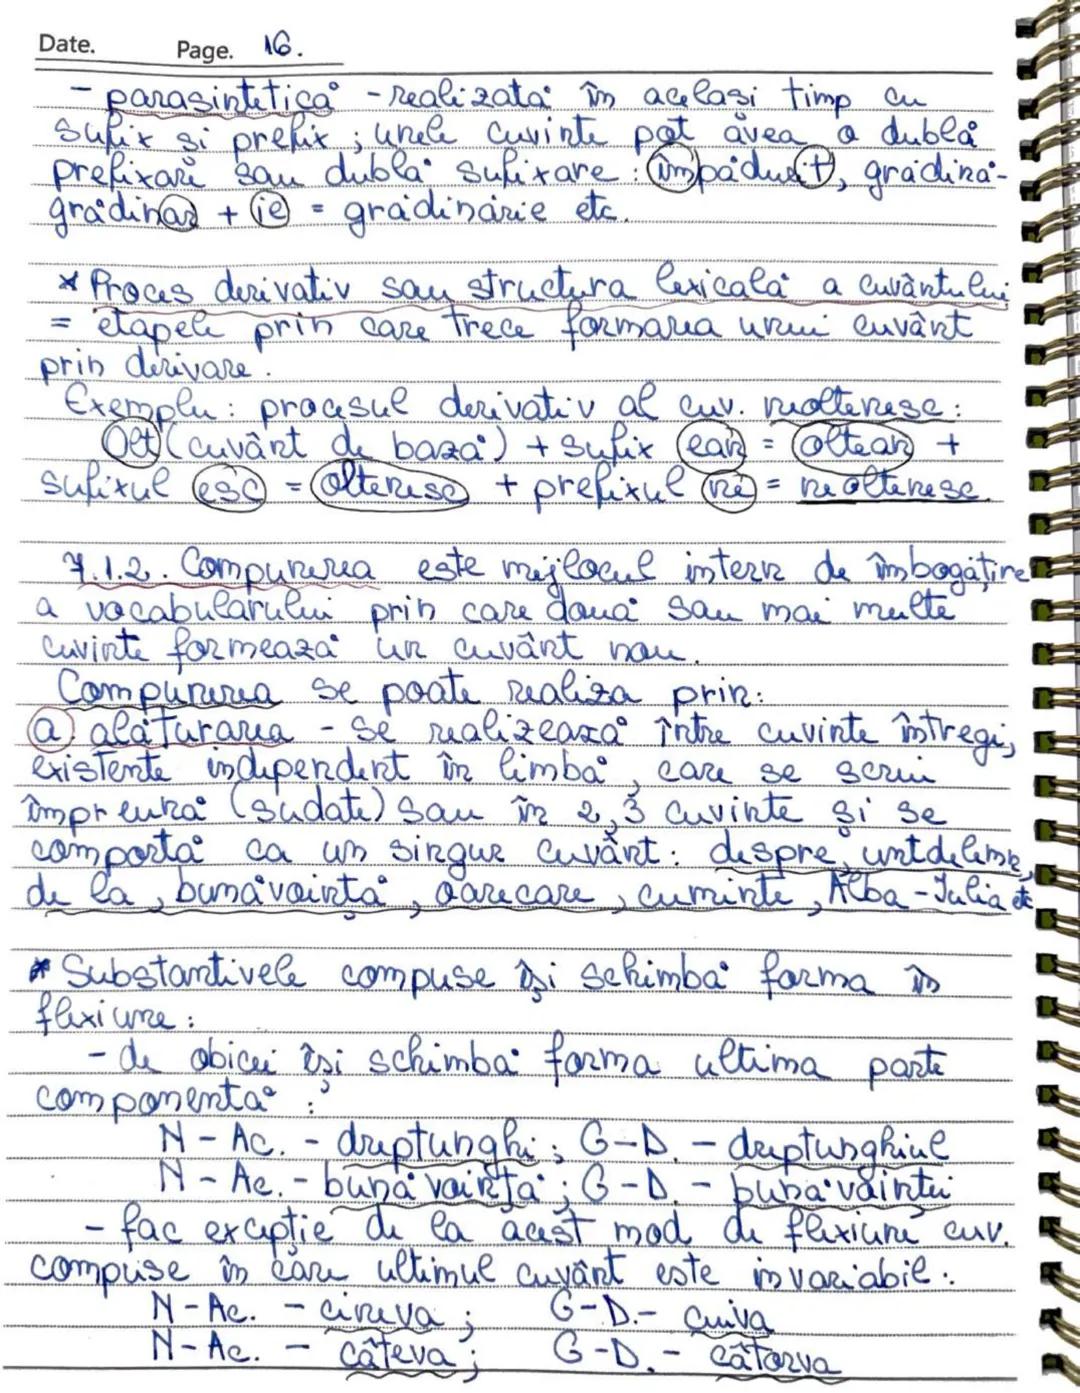 Date. Page. 16.
- parasintetică - realizată în același timp cu
sufix și prefix ; unele cuvinte pot avea o dublă
prefixare sau dublă sufixare : împădurit, grădină-
grădinar + ie = grădinărie etc.
* Proces derivativ sau structura lexicală a cuvântului
= etapele prin care trece formarea unui cuvânt
prin derivare.
Exemplu : procesul derivativ al cuv. reoltenesc :
Olt (cuvânt de bază) + sufix ean = oltean +
sufixul esc = oltenesc + prefixul re = reoltenesc
7.1.2. Compunerea este mijlocul intern de îmbogățire
a vocabularului prin care două sau mai multe
cuvinte formează un cuvânt nou.
Compunerea se poate realiza prin:
a) alăturarea - se realizează între cuvinte întregi,
existente independent în limbă, care se scriu
împreună (sudate) sau în 2, 3 cuvinte și se
comportă ca un singur cuvânt : despre, untdelemn,
de la, bunăvoință, oarecare, cuminte, Alba-Iulia etc
* Substantivele compuse își schimbă forma în
flexiune :
- de obicei își schimbă forma ultima parte
componentă :
N - Ac. - dreptunghi ; G-D. - dreptunghiul
N - Ac. - bunăvoință ; G-D. - bunăvoinței
- fac excepție de la acest mod de flexiune cuv.
compuse în care ultimul cuvânt este invariabil :
N - Ac. - cineva ; G-D. - cuiva
N - Ac. - câteva ; G-D. - câtorva